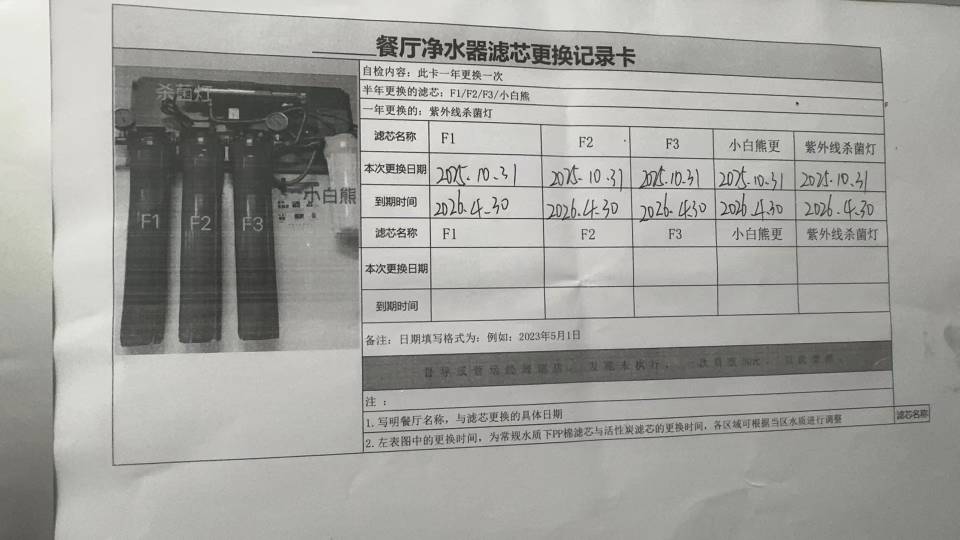 餐厅净水器滤芯更换记录卡
自检内容：此卡一年更换一次
半年更换的滤芯：F1/F2/F3/小白熊
一年更换的：紫外线杀菌灯
杀菌灯
F1 F2 F3 小白熊
滤芯名称 F1 F2 F3 小白熊更 紫外线杀菌灯
本次更换日期 2025.10.31 2025.10.31 2025.10.31 2025.10.31 2025.10.31
到期时间 2026.4.30 2026.4.30 2026.4.30 2026.4.30 2026.4.30
滤芯名称 F1 F2 F3 小白熊更 紫外线杀菌灯
本次更换日期
到期时间
备注：日期填写格式为：例如：2023年5月1日
发现未执行，
注：
1.写明餐厅名称，与滤芯更换的具体日期
2.左表图中的更换时间，为常规水质下PP棉滤芯与活性炭滤芯的更换时间，各区域可根据当区水质进行调整
滤芯名称